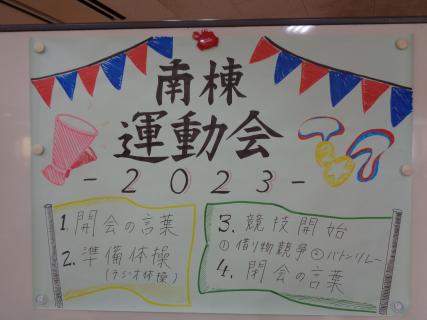 南棟
運動会
-2023-
1. 開会の言葉
2. 準備体操
(ラジオ体操)
3. 競技開始
①借り物競争 ②バトンリレー
4. 閉会の言葉